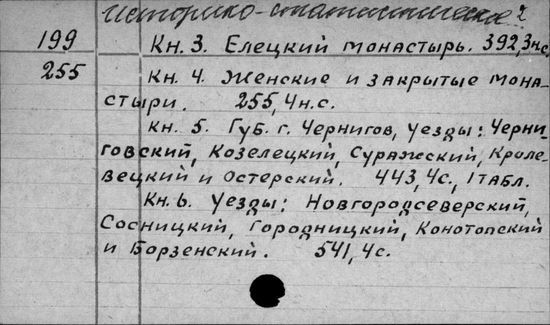 Историко-статистическое 2
199 Кн. 3. Елецкий монастырь. 392,3н.с.
255 Кн. 4. Женские и закрытые мона-
стыри. 255,4н.с.
Кн. 5. Губ. г. Чернигов, уезды: Черни-
говский, Козелецкий, Суражский, Кроле-
вецкий и Остерский. 443,4с., 1табл.
Кн. 6. Уезды: Новгородсеверский,
Сосницкий, Городницкий, Конотопский
и Борзенский. 541,4с.